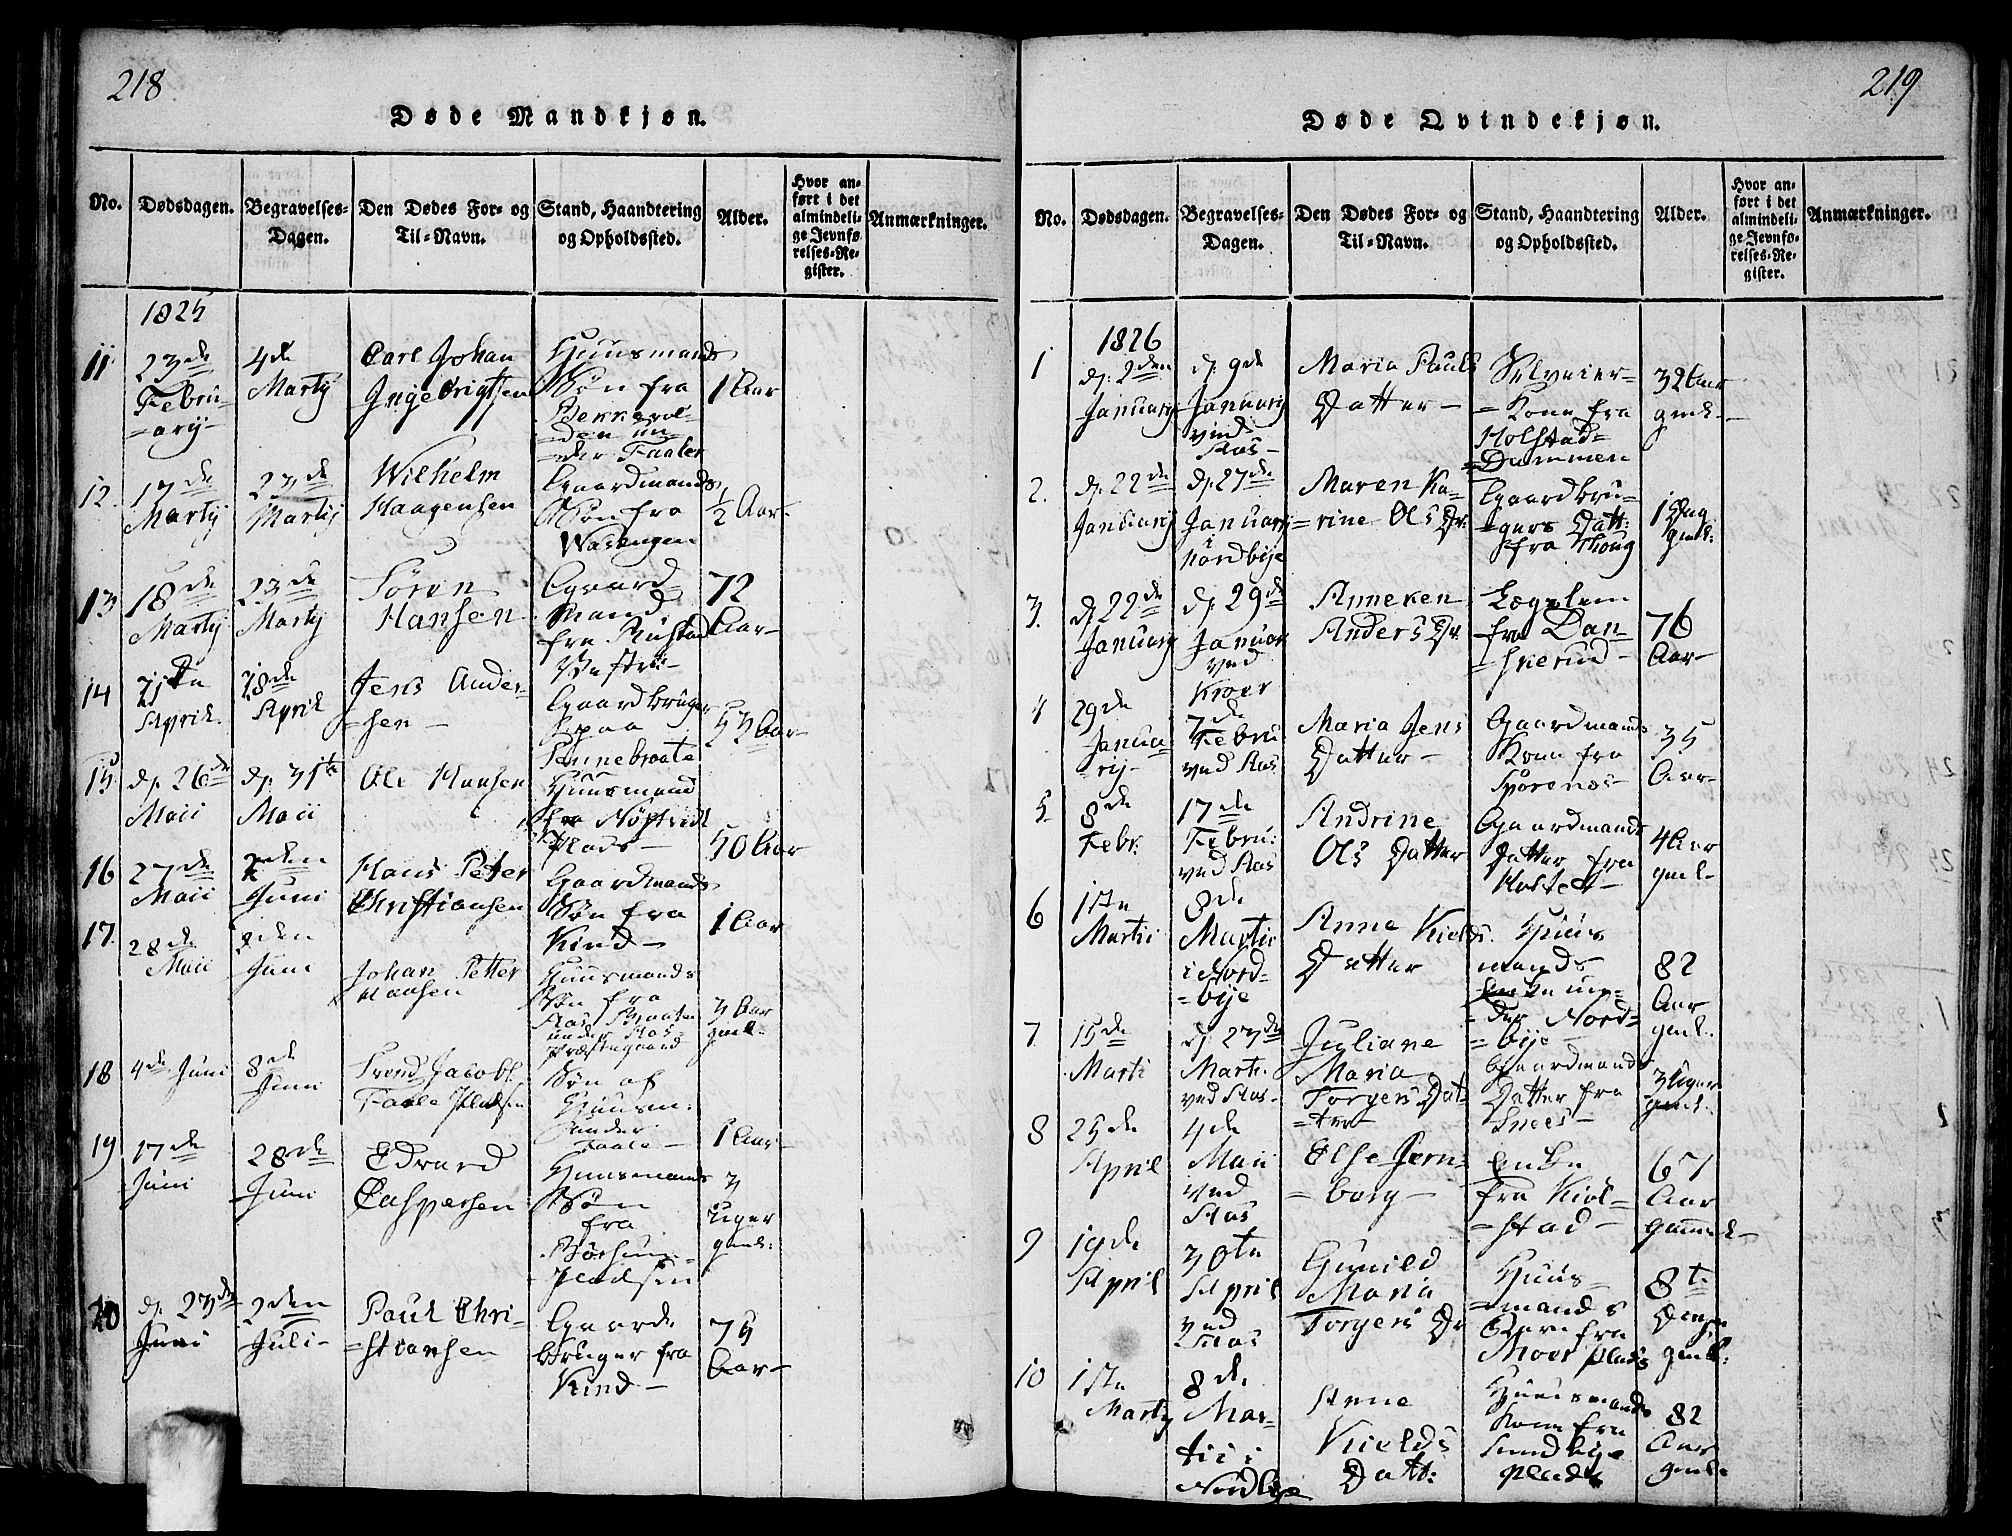 218
Døde Mandkjøn.
No.
Dødsdagen.
Begravelses-
Dagen.
Den Dødes For- og
Til-Navn.
Stand, Haandtering
og Opholdssted.
Alder.
Hvor an-
ført i det
almindeli-
ge Jevnfø-
relses-Re-
gister.
Anmærkninger.
1825
11
23de
Febru-
=arij-
4de
Martij
Carl Johan
Ingebrigtsen
Huusmands
Søn fra
=den un=
der Faale
1 Aar
12.
17de
Martij
23de
Martij
Wilhelm
Haagensen
Gaardmands
Søn fra
Wasengen
½ Aar-
13
18de
Martij
23de
Martij
Søren
Hansen
Gaard
Mand
fra Rustad
Vestre-
72
Aar-
14
21de
April.
28de
April
Jens Ander-
=sen-
Gaardbruger
paa
53 Aar-
15
d. 26de
Maii
d. 31te
Maii
Ole Hansen
Huusmand
fra
Plads-
50 Aar
16
27de
Maii
2den
Juni
Hans Peter
Christiansen
Gaardmands
Søn fra
Kind-
1 Aar
17.
28de
Maii
2den
Juni
Johan Petter
Hansen
Huusmands
Søn fra
Aas Braaten
under Aas
Præstegaard
3 Aar
gml.
18
4de Juni
8de
Juni
Trond Jacobs.
Faale Pladsen
Søn af
Huusm.
under
Faale-
1 Aar-
19
17de
Juni
28de
Juni
Edvard
Caspersen
Huusmands
Søn
fra
Pladsen
3
Uger
gml:
20
d. 23de
Juni
2den
Juli-
Paul Chri-
=stiansen
Gaard
bruger fra
Kind-
75
Aar-
219
Døde Qvindekjøn.
No.
Dødsdagen.
Begravelses-
Dagen.
Den Dødes For- og
Til-Navn.
Stand, Haandtering
og Opholdssted.
Alder.
Hvor an-
ført i det
almindeli-
ge Jevnfø-
relses-Re-
gister.
Anmærkninger.
1826
1
d. 2den
Januarij
d. 9de
Januarij
ved
Aas-
Maria Pauls
Datter-
Selveier-
=Kone fra
Holstad=
=Dammen
32 Aar
gml-
2.
d. 22de
Januarij
d. 27de
Januarij
i
Nordbye
Maren Ka-
=rine Ols Dr.
Gaardbru-
=gers Datt:
fra Thoug
1 Dag
gml:
3.
d. 22de
Januarij
d. 29de
Januar
ved
Kroer
Anneken
Anders Dr.
Lægdlem
fra Dan-
=skerud-
76
Aar-
4
29de
Janua-
rij-
7de
Febru
ved Aas
Maria Jens
Datter-
Gaardmands
Kone fra
Sporenos-
35
Aar-
5
8de
Febr.
17de
Febru:
ved Aas
Andrine
Ols Datter
Gaardmands
Datter fra
4 Aar
gml-
6
1ste
Martii
8de
Martii
i Nord-
=bije
Anne Kields.
Datter
Huus
mands
Enke un-
=der Nord=
=bije-
82
Aar
gml.
7
15de
Marti
d. 27de
Marti.
ved Aas-
Juliane
Maria
Torgers Dat-
=ter-
Gaardmands
Datter fra
Snees-
3 Uger
gml.
8
25de
April
4de
Maii
ved
Aas
Else Jern-
=borg-
Enke
fra Kiøl-
=stad-
67
Aar
gammel-
9
19de
April
30te
April
ved
Aas
Gunild
Maria
Torgers Dr
Huus-
=mands
Barn fra
Moer Plads
8te
Dage
gml:
10
1ste
Martij
8de
Mar-
tii i
Nordbye
Anne
Kields
Datt:
Huusmands
Kone fra
Pladsen
82
Aar
gml-